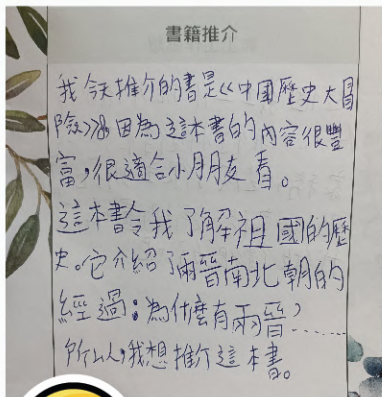 書籍推介
我今天推介的書是《中國歷史大冒
險》，因為這本書的內容很豐
富，很適合小朋友看。
這本書令我了解祖國的歷
史。它介紹了兩晉南北朝的
經過：為什麼有兩晉？……
所以，我想推介這本書。